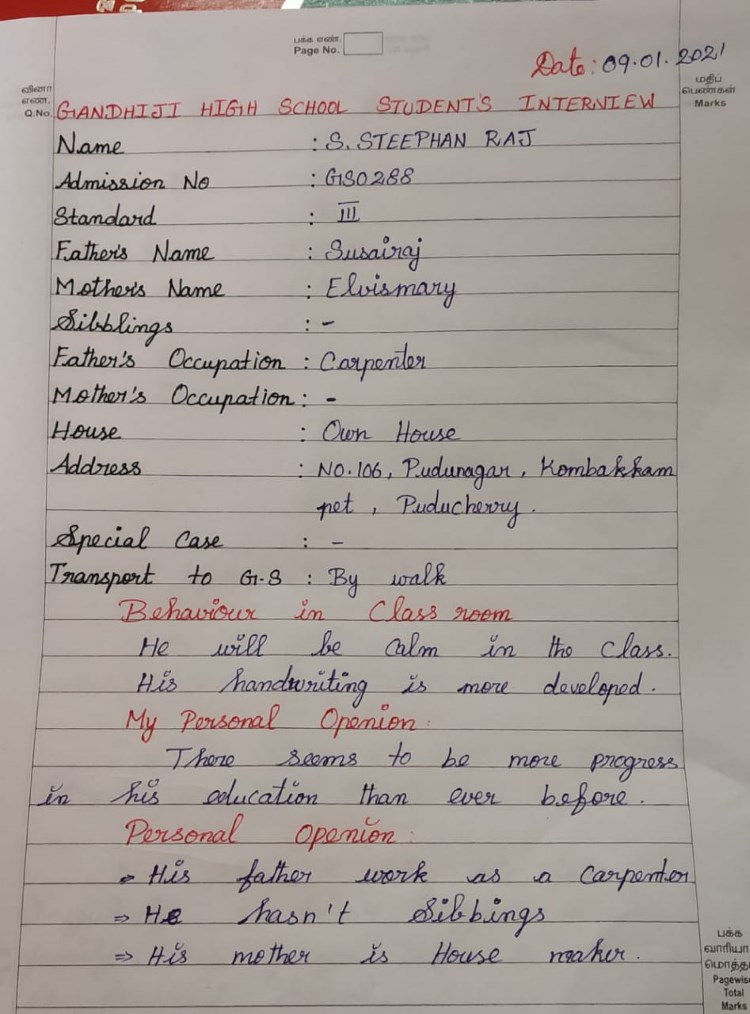 பக்க எண்.
Page No.
Date: 09.01.2021
வினா எண்.
Q.No.
மதிப் பெண்கள்
Marks
GANDHIJI HIGH SCHOOL STUDENT'S INTERVIEW
Name : S. STEEPHAN RAJ
Admission No : GS0288
Standard : III
Father's Name : Susairaj
Mother's Name : Elvismary
Sibblings : -
Father's Occupation : Carpenter
Mother's Occupation : -
House : Own House
Address : NO.106, Pudunagar, Kombakkham
pet, Puducherry.
Special Case : -
Transport to G.S : By walk
Behaviour in Class room
He will be calm in the class.
His handwriting is more developed.
My Personal Openion:
There seems to be more progress
in his education than ever before.
Personal Openion:
⇒ His father work as a Carpenter
⇒ He hasn't Sibbings
⇒ His mother is House maker.
பக்க
வாரியா
மொத்த
Pagewise
Total
Marks